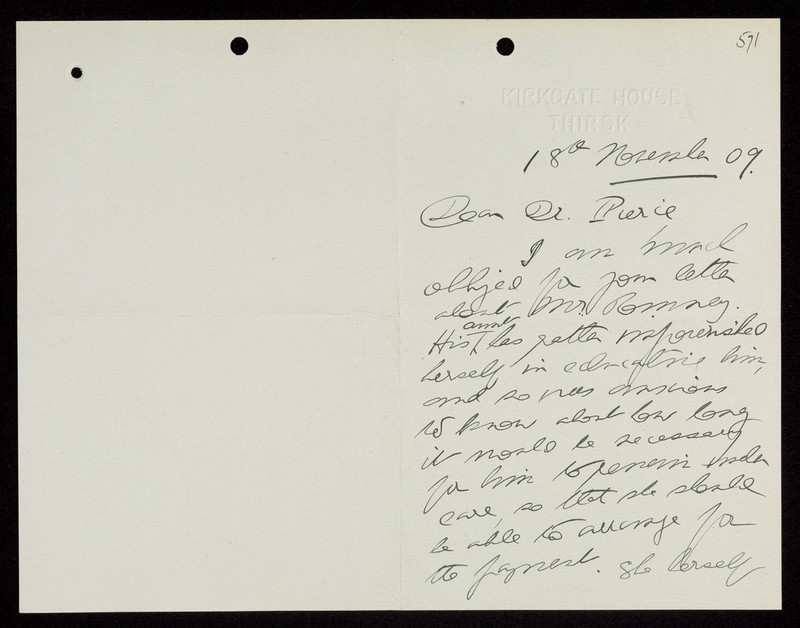 571
KIRKGATE HOUSE
THIRSK
18th November 09.
Dear Dr. Pierce
I am much
obliged for your letter
about Mr Romney.
His aunt has rather impoverished
herself in educating him,
and so was anxious
to know about how long
it would be necessary
for him to remain under
care, so that she should
be able to arrange for
the payment. She herself